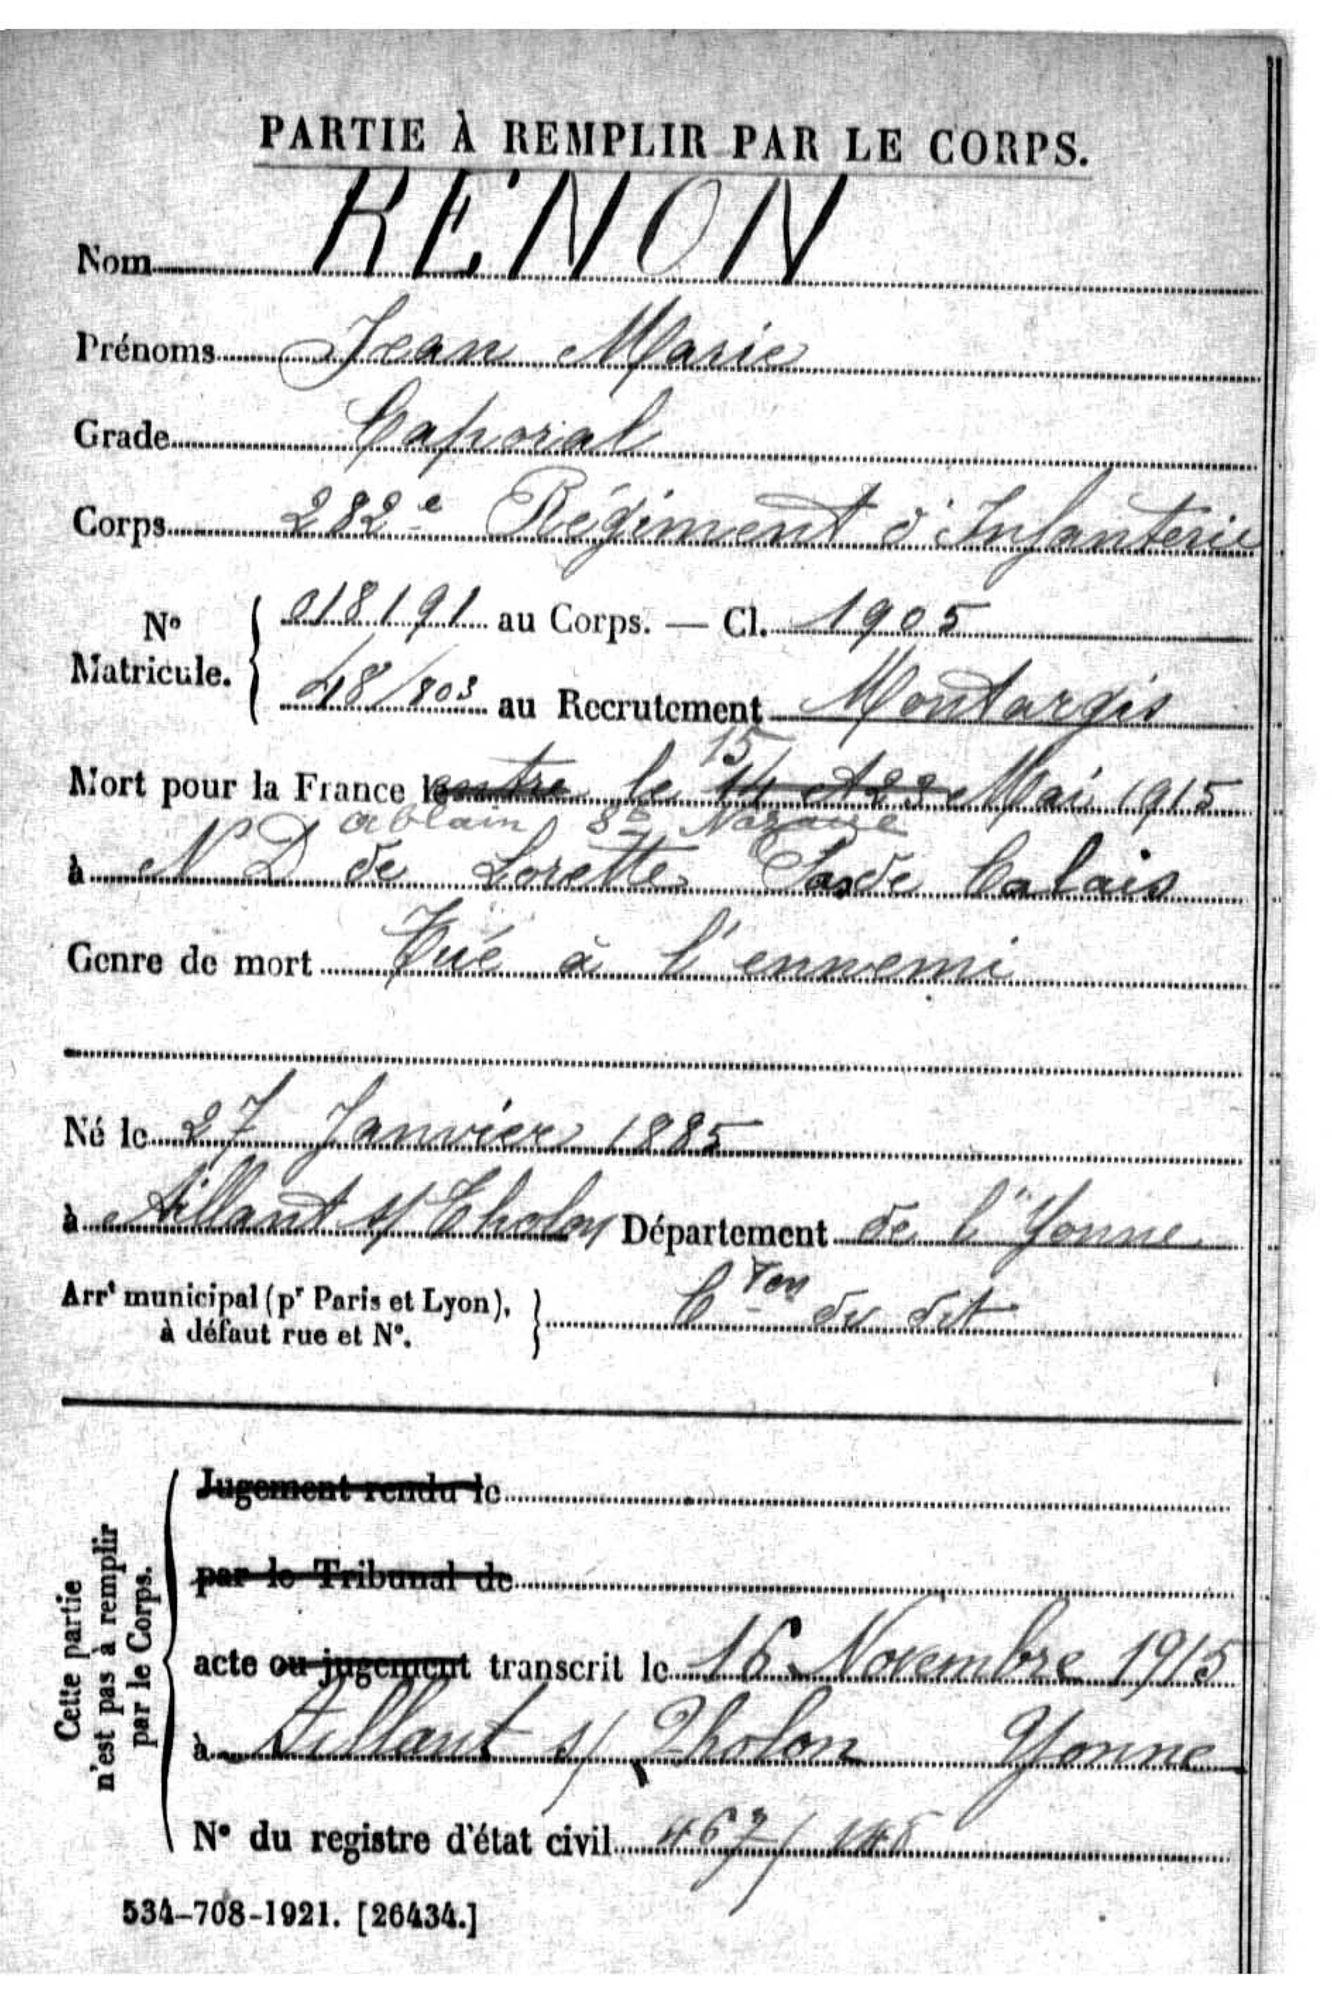 PARTIE À REMPLIR PAR LE CORPS.
Nom RENON
Prénoms Jean Marie
Grade Caporal
Corps 282e Régiment d'Infanterie
No Matricule. 018191 au Corps. — Cl. 1905
48/803 au Recrutement Montargis
15
Mort pour la France le entre le 14 et 23 Mai 1915
ablain St Nazaire
à N D de Lorette Pas de Calais
Genre de mort Tué à l'ennemi
Né le 27 Janvier 1885
à Aillant s/ Tholon Département de l'Yonne
Arrt municipal (pr Paris et Lyon), à défaut rue et No. Cton du dit
Cette partie n'est pas à remplir par le Corps.
Jugement rendu le
par le Tribunal de
acte ou jugement transcrit le 16 Novembre 1915
à Aillant s/ Tholon Yonne
No du registre d'état civil 467/
534-708-1921. [26434.]